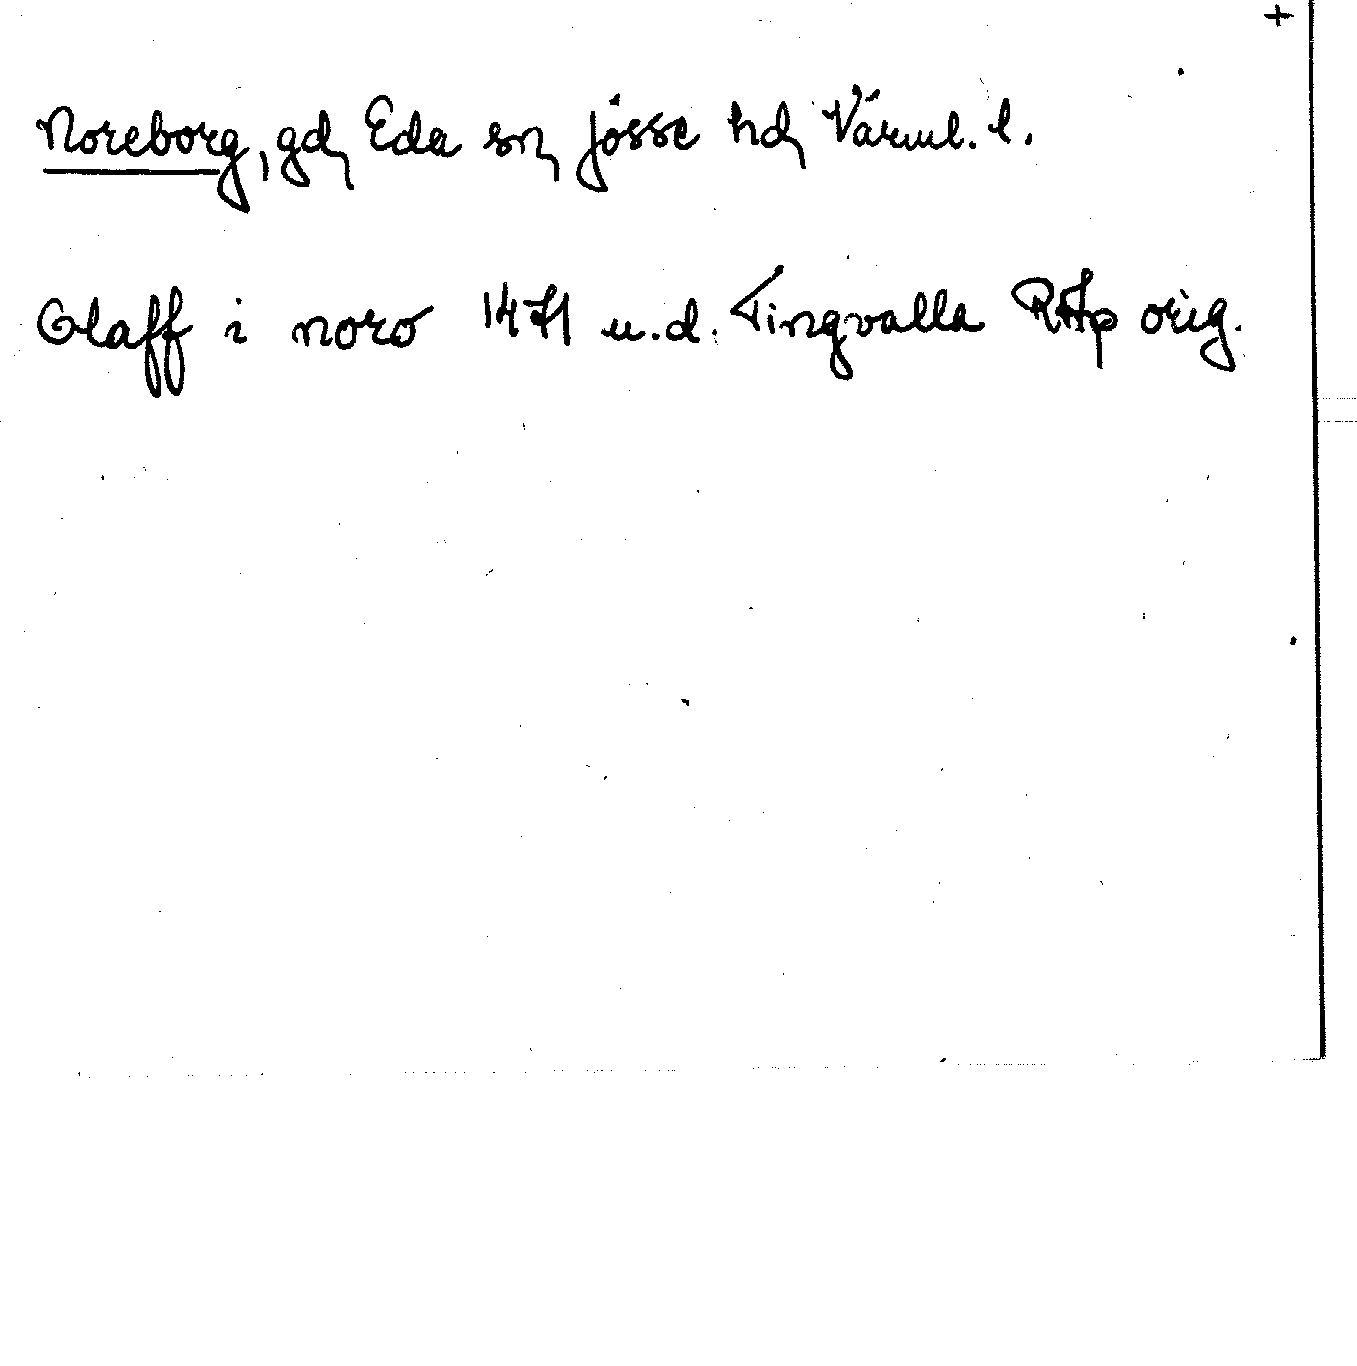 +
Noreborg, gd, Eda sn, Jösse hd, Värml. l.
Olaff i noro 1471 u.d. Tingvalla RAp orig.